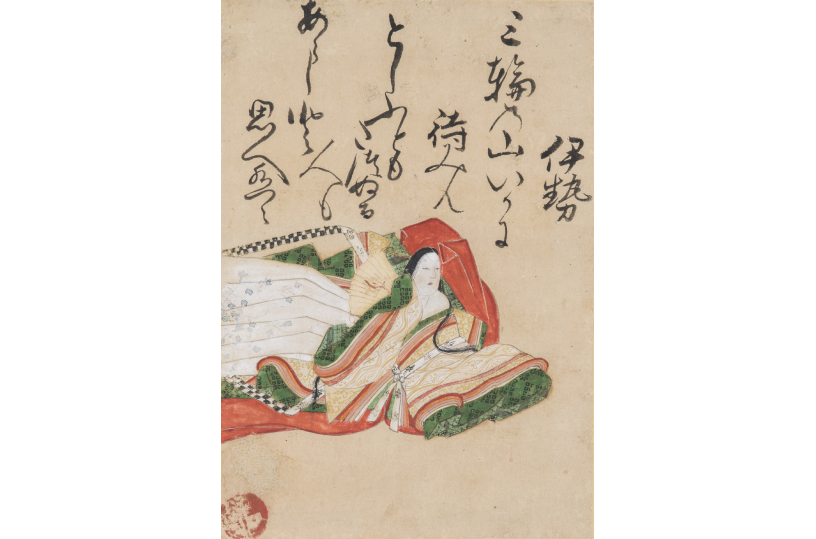 伊勢
三輪の山いかに
待みん
としふとも
たつぬる
人も
あらしと
思へは